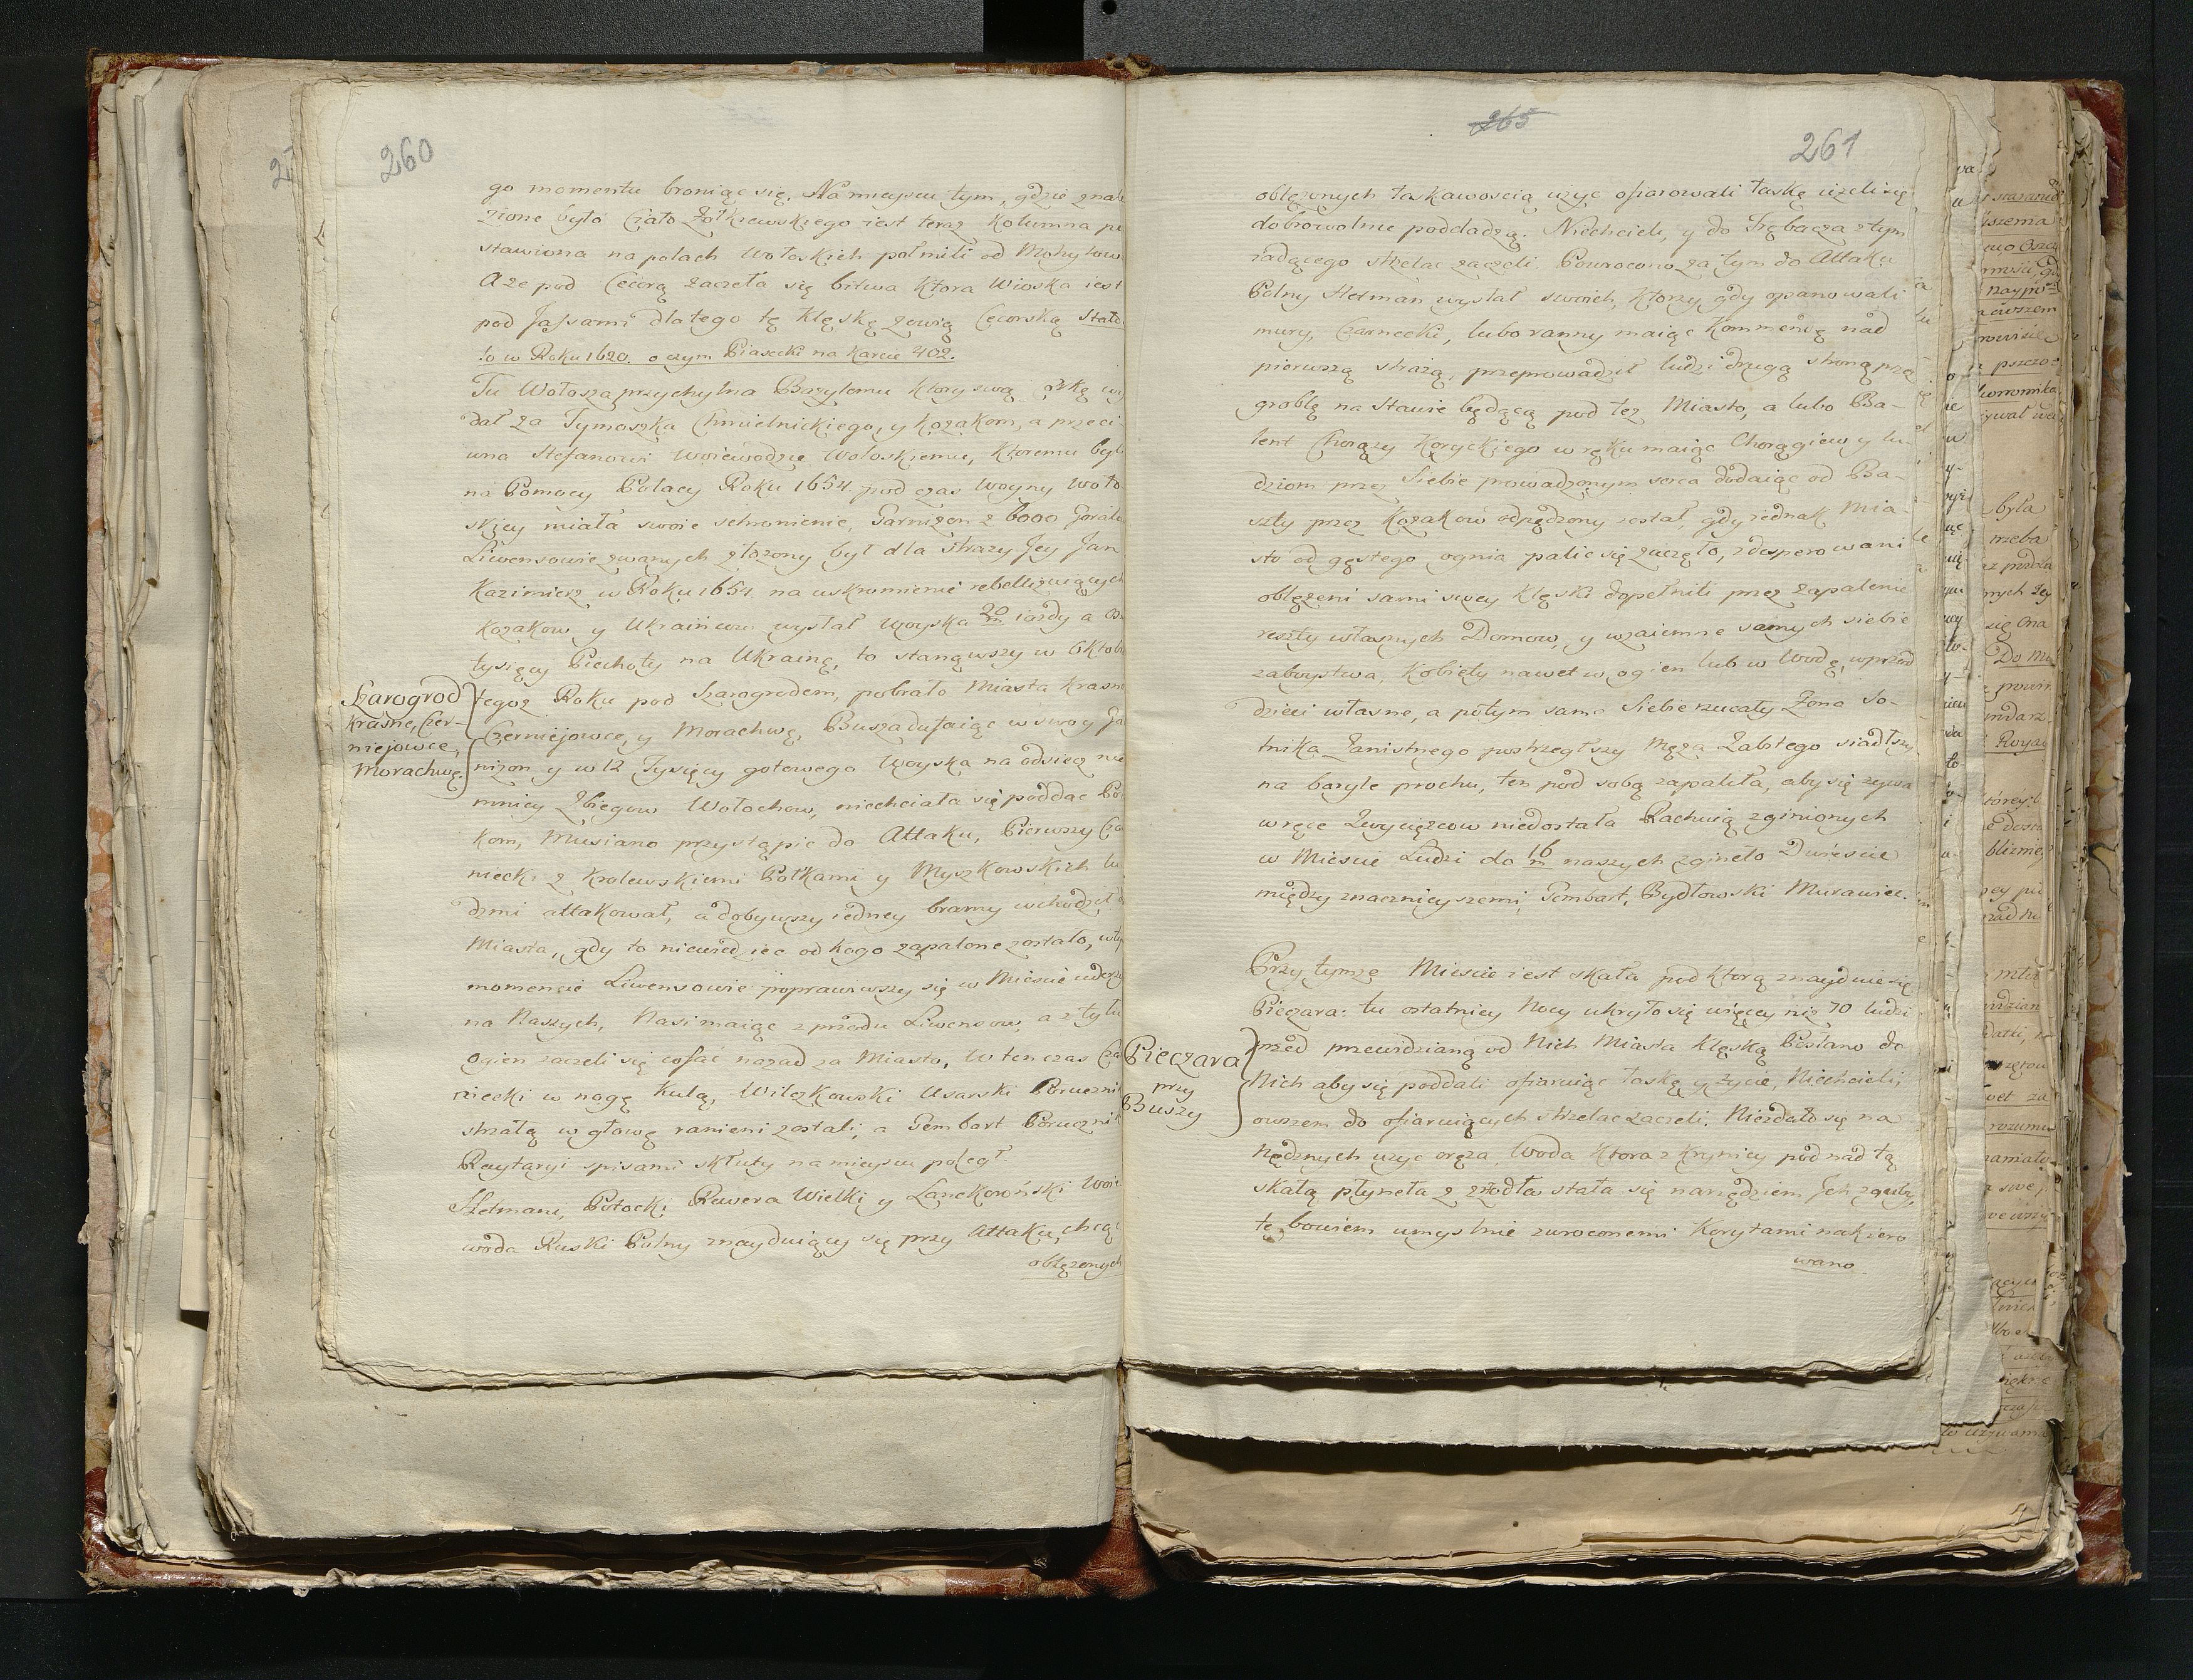 260
go momentu broniąc się. Na mieyscu tym, gdzie znale
zione było Ciało Żołkiewskiego iest teraz Kolumna
stawiona na polach Wołoskich połmili od Mohylowa
A że pod Cecorą zaczeła się bitwa Ktora Wioska iest
pod Jassami dlatego tę klęskę zowią Cecorską
to w Roku 1620. o czym Piasecki na Karcie 402.
Tu Wołosza przychylna Bazylemu Ktory swą corkę wy
dał za Tymoszka Chmielnickiego, y kozakom, a przeci
wna Stefanowi Woiewodzie Wołoskiemu, Ktoremu byli
na Pomocy Polacy Roku 1654. pod czas Woyny Woło
skiey miała swoie schronienie, Garnizon z 6000
Liwensowie zwanych złożony był dla straży Jey Jan
Kazimierz w Roku 1654 na uskromienie rebellizuiących
Kozakow y Ukraińcow wysłał woyska 20/m iazdy a
tysięcy Piechoty na Ukrainę, to stanąwszy w Oktob
tegoż Roku pod Szarogrodem, pobrało Miasta Krasne
Szarogrod
Krasne, Czer-
niejowce,
Morachwę.
Czerniejowce, y Morachwę, Busza dufaiąc w swoy Ga
nizon y w 12 Tysięcy gotowego Woyska na odsiecz nie
mniey Zbiegow Wołochow, niechciała się poddac Po
kom, Musiano przystąpic do Attaku, Pierwszy Cza
niecki z Krolewskiemi Połkami y Myszkowskich lu
dzmi attakował, a dobywszy iedney bramy wchodził
Miasta, gdy to niewiedziec od kogo zapalone zostało, w ty
momencie Liwensowie poprawiwszy się w Miescie uderzy
na Naszych, Nasi maiąc z przodu Liwensow, a z tyłu
ogien zaczeli się cofać nazad za Miasto, W ten czas Cza
niecki w nogę kulą, Wilczkowski Usarski Porucznik
strzałą w głowę ranieni zostali, a Gembart Porucznik
Raytaryi spisami skłuty na mieyscu poległ.
Hetmani, Potocki Rewera Wielki y Lanckoroński Woie
woda Ruski Polny znayduiący się przy Attaku, chcąc
oblężonych
265
261
oblężonych łaskawością użyc ofiarowali łaskę ieżeli się
dobrowolnie poddadzą. Niechcieli, y do Trębacza z tym
iadącego strzelac zaczeli. Powrocono za tym do Attaku
Polny Hetman wysłał swoich, Ktorzy gdy opanowali
mury, Czarnecki, lubo ranny maiąc Kommendę nad
pierwszą strażą, przeprowadził ludzi drugą stroną przez
groblę na Stawie będącą pod też Miasto, a lubo Ba-
lent Chorąży Koryckiego w ręku maiąc Chorągiew y lu-
dziom przez Siebie prowadzonym serca dodaiąc od Ba-
szty przez Kozakow odpędzony został, gdy jednak Mia-
sto od gęstego ognia palic się zaczęło, zdesperowani
oblężeni sami swey klęski dopełnili przez zapalenie
reszty własnych Domow, y wzaiemne samych siebie
zaboystwa, Kobiety nawet w ogien lub w Wodę, wprzod
dzieci własne, a potym same Siebie rzucały Żona So-
tnika Zawistnego postrzegłszy Męża Zabitego siadłszy
na baryle prochu, ten pod sobą zapaliła, aby się żywa
w ręce Zwycięzcow niedostała Rachuią zginionych
w Miescie Ludzi do 16/m naszych zgineło Dwiescie
między znacznieyszemi, Gembart, Bydłowski Murawiec.
Przy tymże Miescie iest skała pod ktorą znayduie się
Pieczara: tu ostatniey Nocy ukryło się więcey niż 70 ludzi
Pieczara
przy
Buszy
przed przewidzianą od Nich Miasta klęską Posłano do
Nich aby się poddali ofiaruiąc łaskę y życie, Niechcieli,
owszem do ofiaruiących strzelac zaczeli. Niezdało się na
Nędznych użyc oręża, Woda Ktora z Krynicy pod nad tą
skałą płyneła z źrodła stała się narzędziem Jch zguby,
tę bowiem umyslnie zwroconemi Korytami nakiero
wano